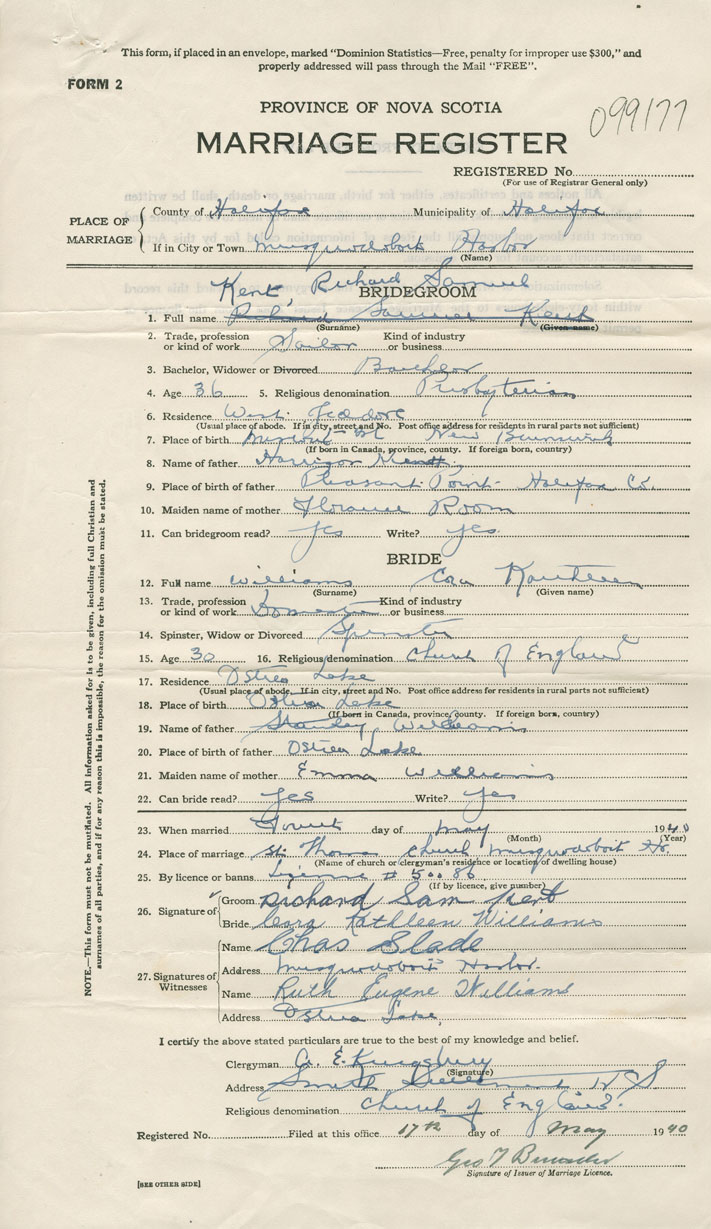 This form, if placed in an envelope, marked "Dominion Statistics—Free, penalty for improper use $300," and
properly addressed will pass through the Mail "FREE".
FORM 2
PROVINCE OF NOVA SCOTIA
099177
MARRIAGE REGISTER
REGISTERED No.
(For use of Registrar General only)
PLACE OF MARRIAGE
County of Halifax Municipality of Halifax
If in City or Town Musquodoboit Harbor
(Name)
Kent, Richard Samuel
BRIDEGROOM
1. Full name Richard Samuel Kent
(Surname) (Given name)
2. Trade, profession or kind of work Sailor Kind of industry or business
3. Bachelor, Widower or Divorced Bachelor
4. Age 36 5. Religious denomination Presbyterian
6. Residence West Jeddore
(Usual place of abode. If in city, street and No. Post office address for residents in rural parts not sufficient)
7. Place of birth New Brunswick
(If born in Canada, province, county. If foreign born, country)
8. Name of father Harrison
9. Place of birth of father Pleasant Point Halifax Co.
10. Maiden name of mother Florence Room
11. Can bridegroom read? yes Write? yes.
BRIDE
12. Full name Williams Cora Kathleen
(Surname) (Given name)
13. Trade, profession or kind of work Domestic Kind of industry or business
14. Spinster, Widow or Divorced Spinster
15. Age 30 16. Religious denomination Church of England
17. Residence Ostrea Lake
(Usual place of abode. If in city, street and No. Post office address for residents in rural parts not sufficient)
18. Place of birth Ostrea Lake
(If born in Canada, province, county. If foreign born, country)
19. Name of father Stanley Williams
20. Place of birth of father Ostrea Lake
21. Maiden name of mother Emma Williams
22. Can bride read? yes Write? yes
23. When married day of May 1940
(Month) (Year)
24. Place of marriage St. Thomas Church Musquodoboit Hr.
(Name of church or clergyman's residence or location of dwelling house)
25. By licence or banns License # 50086
(If by licence, give number)
26. Signature of
Groom Richard Sam Kent
Bride Cora Kathleen Williams
27. Signatures of Witnesses
Name Chas Slade
Address Musquodoboit Harbor.
Name Ruth Eugene Williams
Address Ostrea Lake,
I certify the above stated particulars are true to the best of my knowledge and belief.
Clergyman A. E. Kingsbury
(Signature)
Address Smith Settlement N S
Religious denomination Church of England.
Registered No. Filed at this office 17th day of May 1940
Geo T
Signature of Issuer of Marriage Licence.
[SEE OTHER SIDE]
NOTE.—This form must not be mutilated. All information asked for is to be given, including full Christian and
surnames of all parties, and if for any reason this is impossible, the reason for the omission must be stated.